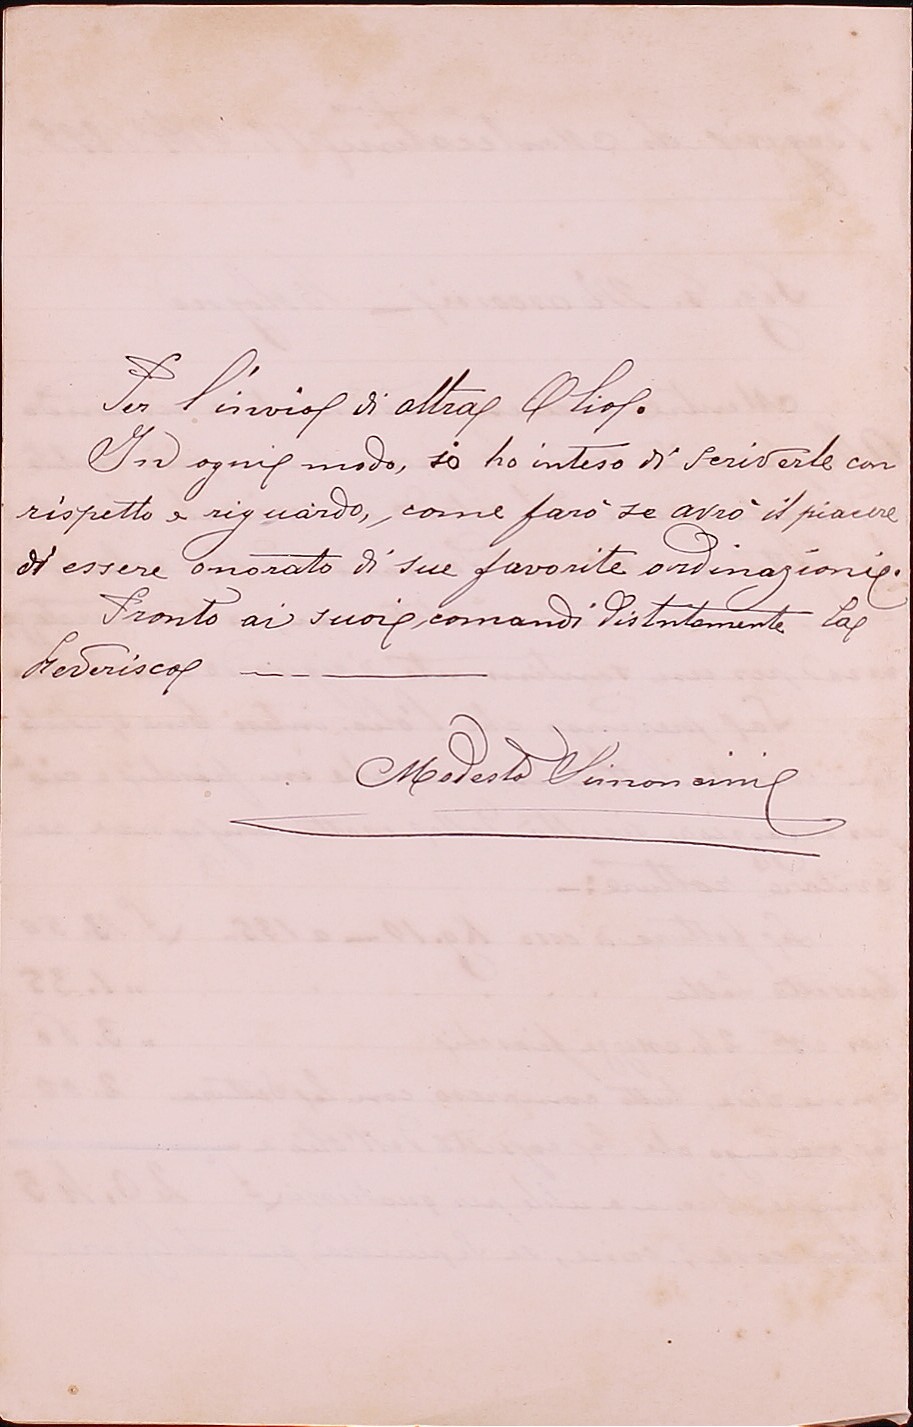 Per l'invio di altra Olio.
In ogni modo, io ho inteso di scriverle con
rispetto e riguardo, come farò se avrò il piacere
di essere onorato di sue favorite ordinazioni.
Pronto ai suoi comandi distntamente La
reverisco
Modesto Simoncini